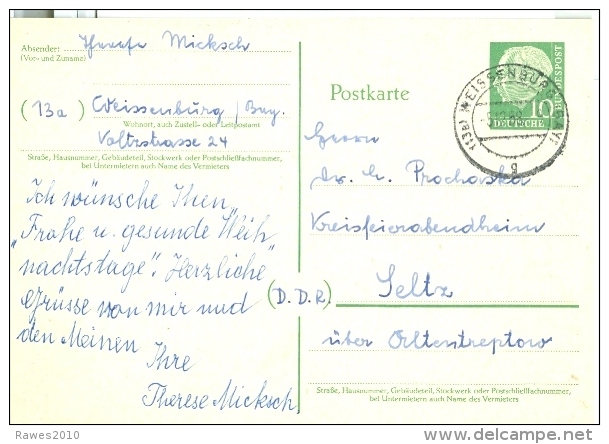 Absender: Therese Micksch
(Vor- und Zuname)
(13a) Weissenburg / Bay.
Wohnort, auch Zustell- oder Leitpostamt
Voltzstrasse 24
Straße, Hausnummer, Gebäudeteil, Stockwerk oder Postschließfachnummer,
bei Untermietern auch Name des Vermieters
Ich wünsche Ihnen
"Frohe u. gesunde Weih-
nachtstage". Herzliche
Grüsse von mir und
den Meinen
Ihre
Therese Micksch
Postkarte
10
DEUTSCHE
BUNDESPOST
(13a) WEISSENBURG (BAY)
g
Herrn
Dr. Prochaska
Kreisfeierabendheim
Seltz
(D.D.R.)
über Altentreptow
Straße, Hausnummer, Gebäudeteil, Stockwerk oder Postschließfachnummer,
bei Untermietern auch Name des Vermieters
Rawes2010
delcampe.net